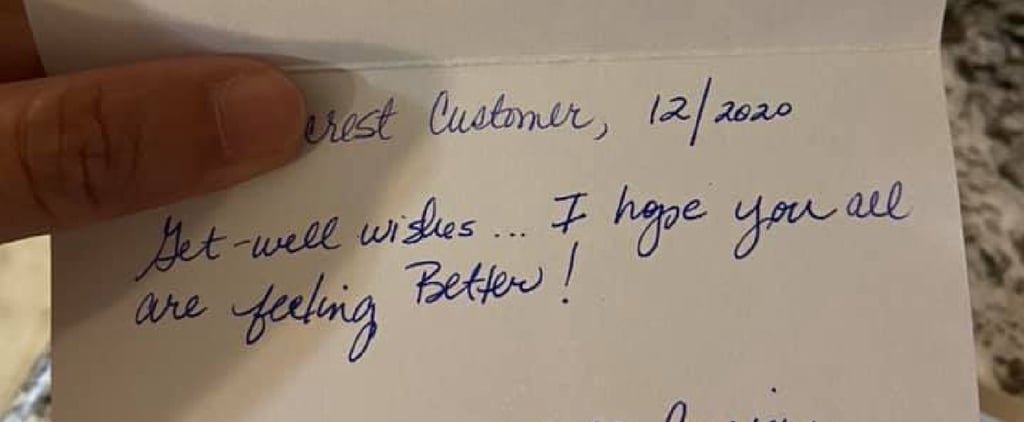 erest Customer, 12/2020
Get-well wishes... I hope you all
are feeling Better!